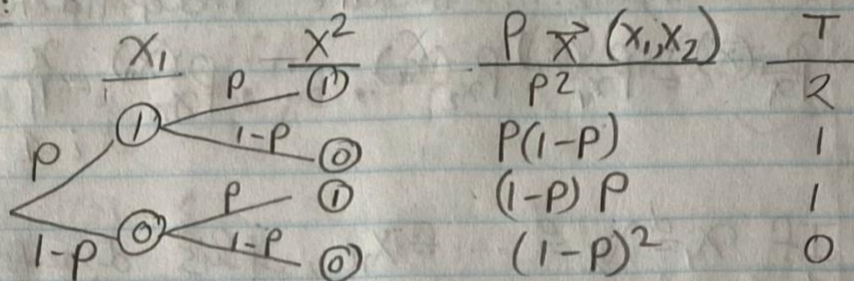 X₁ X² P x⃗ (x₁,x₂) T
p ① p² 2
① 1-p ⓪ P(1-p) 1
p p ① (1-p) P 1
1-p ⓪ 1-p ⓪ (1-p)² 0